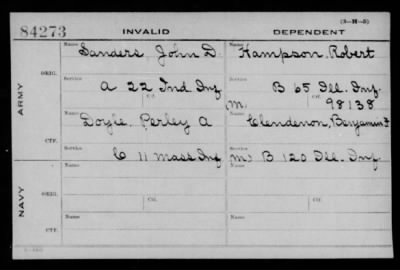 (3-H-5)
84273 INVALID DEPENDENT
Name Name
Sanders, John D. Hampson, Robert
ORIG.
Service Service
A 22 Ind. Inf B 65 Ill. Inf.
Ctf. M. Ctf. 98138
ARMY
Name Name
Doyle, Perley A Clendenon, Benjamin F
CTF.
Service Service
C 11 Mass Inf M. B 120 Ill. Inf.
NAVY
Name Ctf. Name Ctf.
ORIG.
Name Name
CTF.